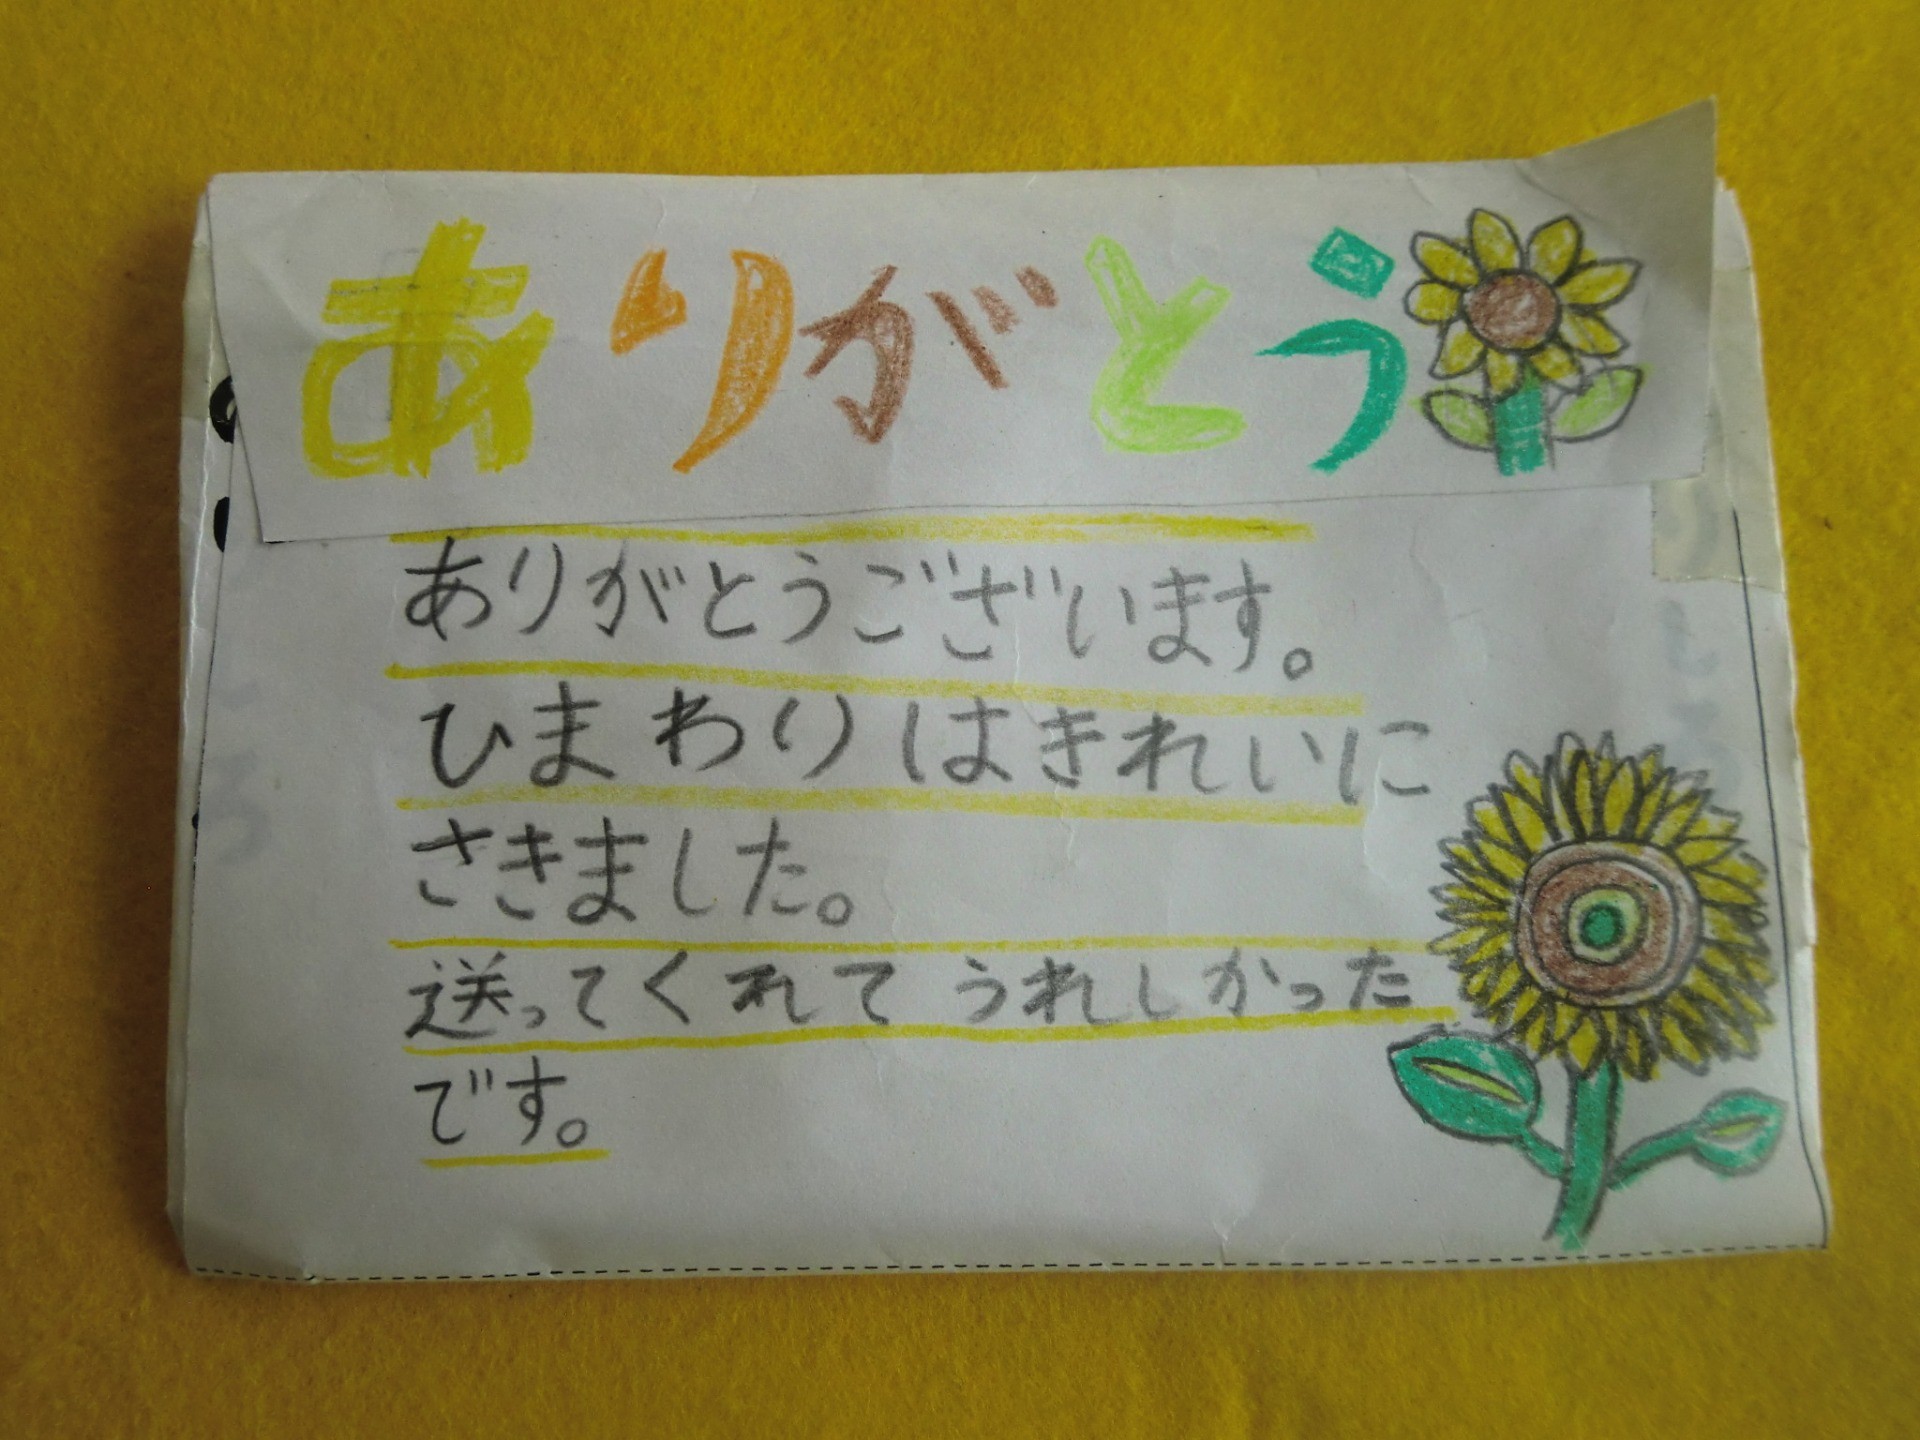 ありがとう
ありがとうございます。
ひまわりはきれいに
さきました。
送ってくれてうれしかった
です。